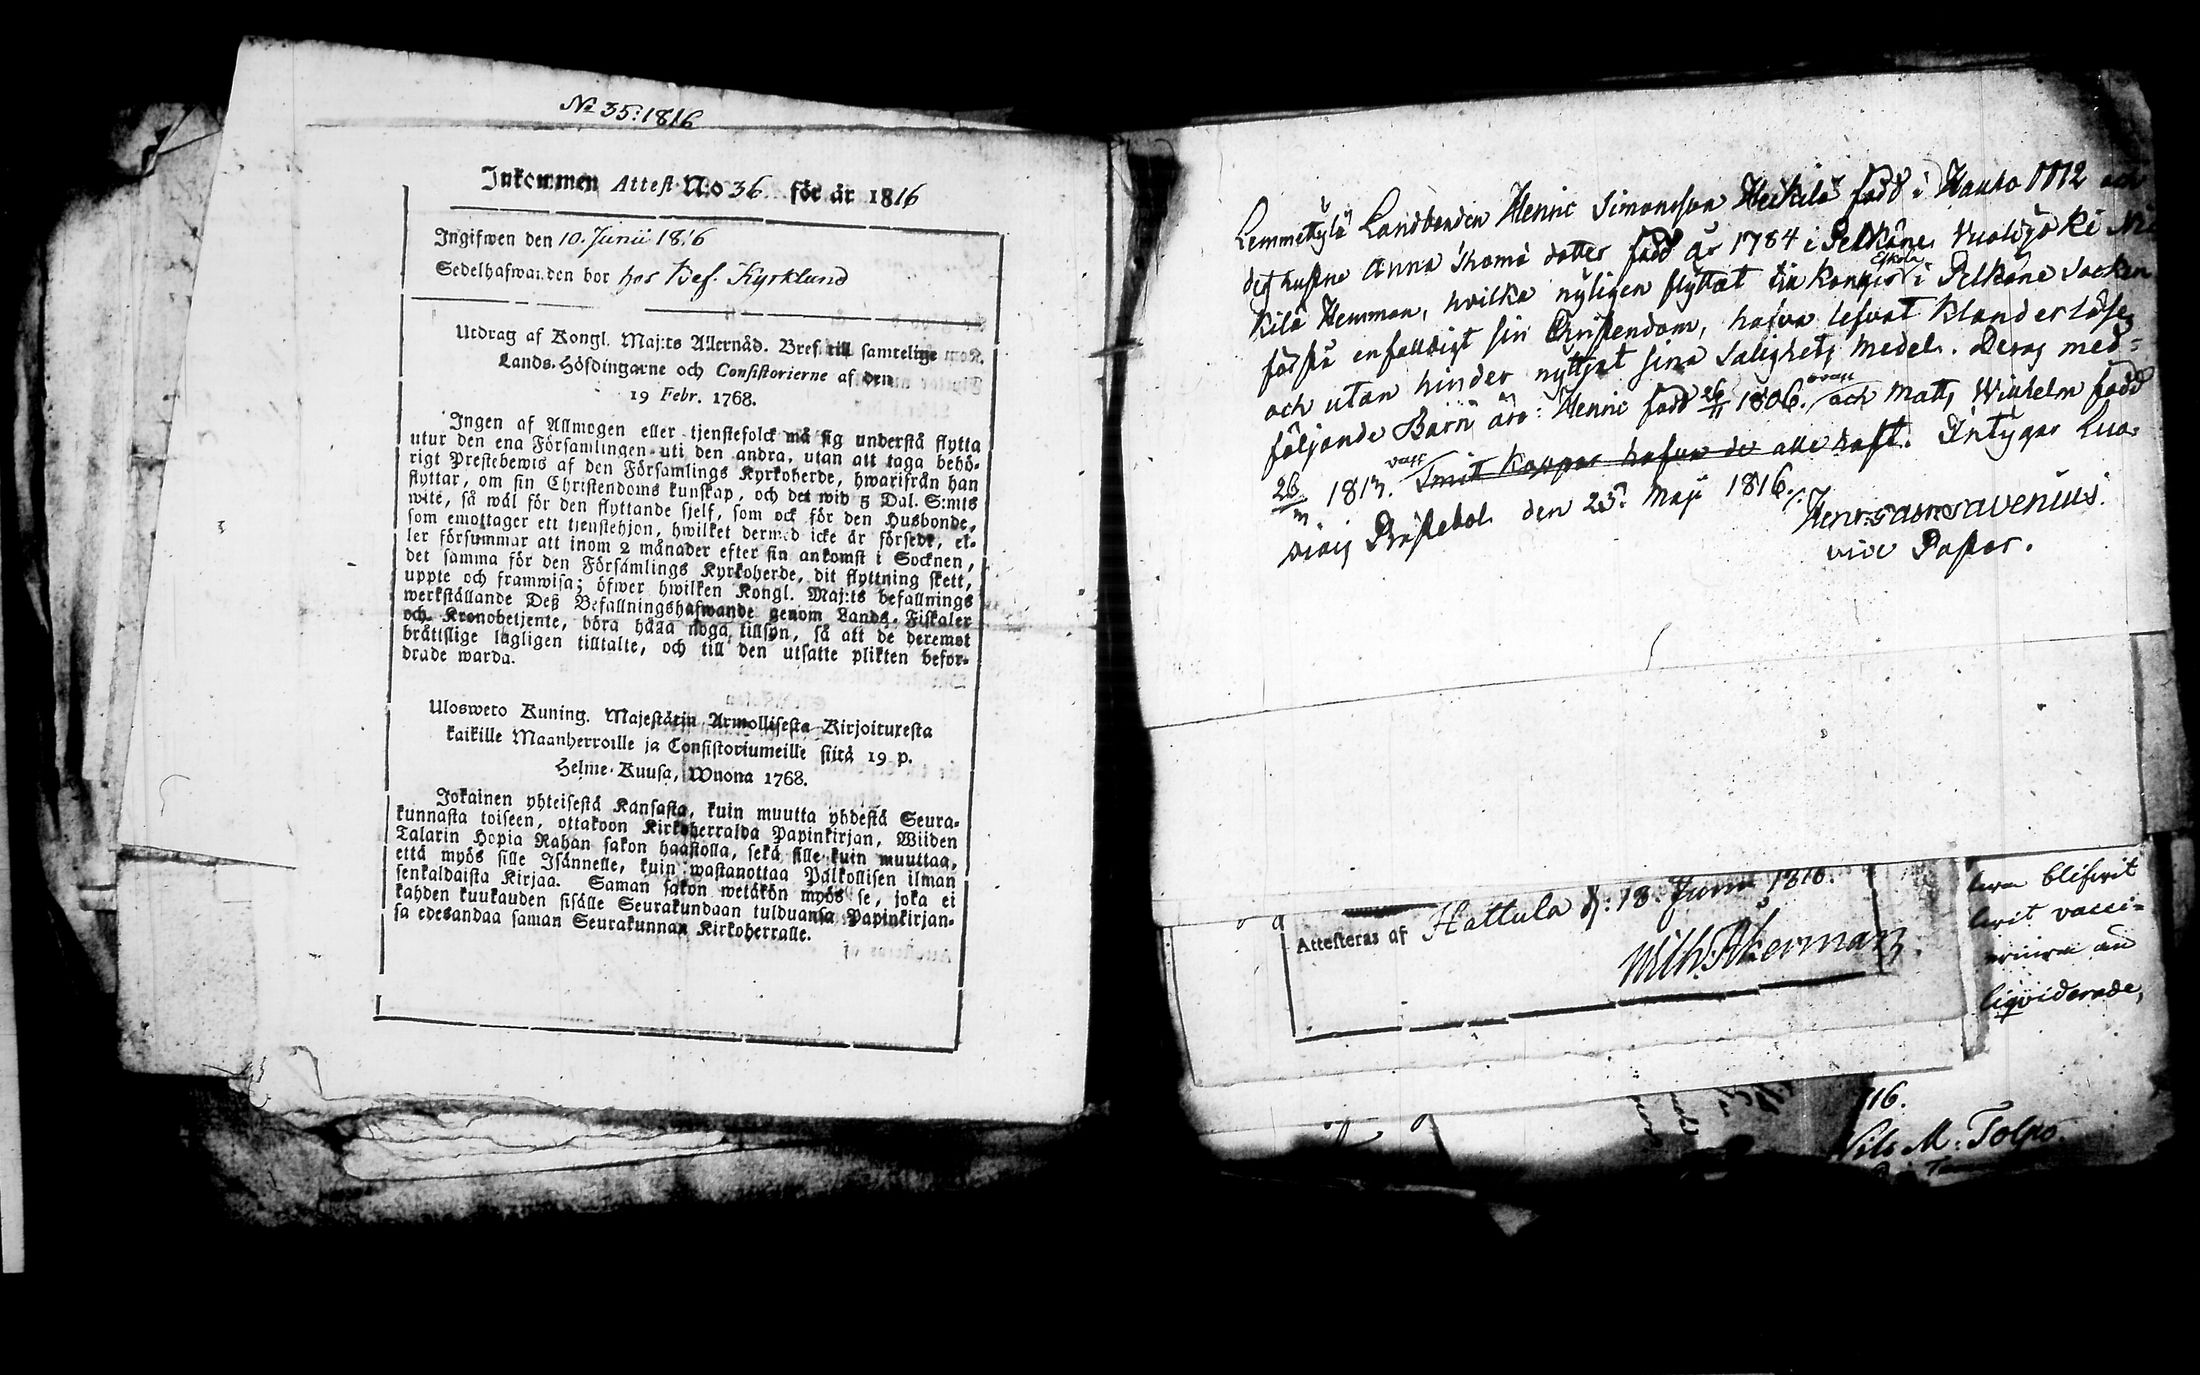 No 35: 1816
Inkommen Attest N:o 36 för år 1816
Ingifwen den 10. Junii 1816
Sedelhafwanden bor hos Bef. Kyrklund
Utdrag af Kongl. Maj:ts Allernåd. Bref till samtelige
Lands-Höfdingarne och Consistorierne af den
19 Febr. 1768.
Ingen af Allmogen eller tjenstefolck må sig understå flytta
utur den ena Församlingen uti den andra, utan att taga behö-
rigt Prestebewis af den Församlings Kyrkoherde, hwarifrån han
flyttar, om sin Christendoms kunskap, och det wid 5 Dal. S:mts
wite, så wäl för den flyttande sjelf, som ock för den Husbonde,
som emottager ett tjenstehjon, hwilket dermed icke är försedt, el-
ler försummar att inom 2 månader efter sin ankomst i Socknen,
det samma för den Församlings Kyrkoherde, dit flyttning skett,
uppte och framwisa; öfwer hwilken Kongl. Maj:ts befallnings
werkställande Deß Befallningshafwande genom Lands-Fiskaler
och Kronobetjente, böra hafa noga tillsyn, så att de deremot
bråttslige lagligen tilltalte, och till den utsatte plikten befor-
drade warda.
Ulosweto Kuning. Majestätin Armollisesta Kirjoituxesta
kaikille Maanherroille ja Consistoriumeille siitä 19 p.
Helme-Kuusa, Wuona 1768.
Jokainen yhteisestä Kansasta, kuin muutta yhdestä Seura-
kunnasta toiseen, ottakoon Kirkoherralda Papinkirjan, Wiiden
Talarin Hopia Rahan sakon haastolla, sekä sille kuin muuttaa,
että myös sille Isännelle, kuin wastanottaa Palkollisen ilman
senkaldaista Kirjaa. Saman sakon wetäkön myös se, joka ei
kahden kuukauden sisälle Seurakundaan tulduansa Papinkirjan-
sa edesandaa saman Seurakunnan Kirkoherralle.
Lemmettylä Landbonden Henric Simonsson Heikilä född i Hauho 1772 och
deß hustru Anna Thomä dotter född år 1784 i Pelkäne Vuolijoki
Eskola
kilä Hemman, hvilka nyligen flyttat till Kangis i Pelkäne Socken
förstå enfalldigt sin Christendom, hafva lefvat Klanderlöse,
och utan hinder nyttjat sina Salighets medel. Deras med-
följande Barn äro: Henric född 26/11 1806. och Matts Wilhelm född
26/ 1813. Smitt Koppor hafva de alle haft. Intygar Luo-
Prästebol den 25. Maji 1816.
Henr: Sam: Savenius.
vice Pastor.
Attesteras af Hattula d: 18. Junii 1816.
Wilh: Åkerman
blifvit
vacci-
liqviderade,
16.
Nils M: Tolpo.